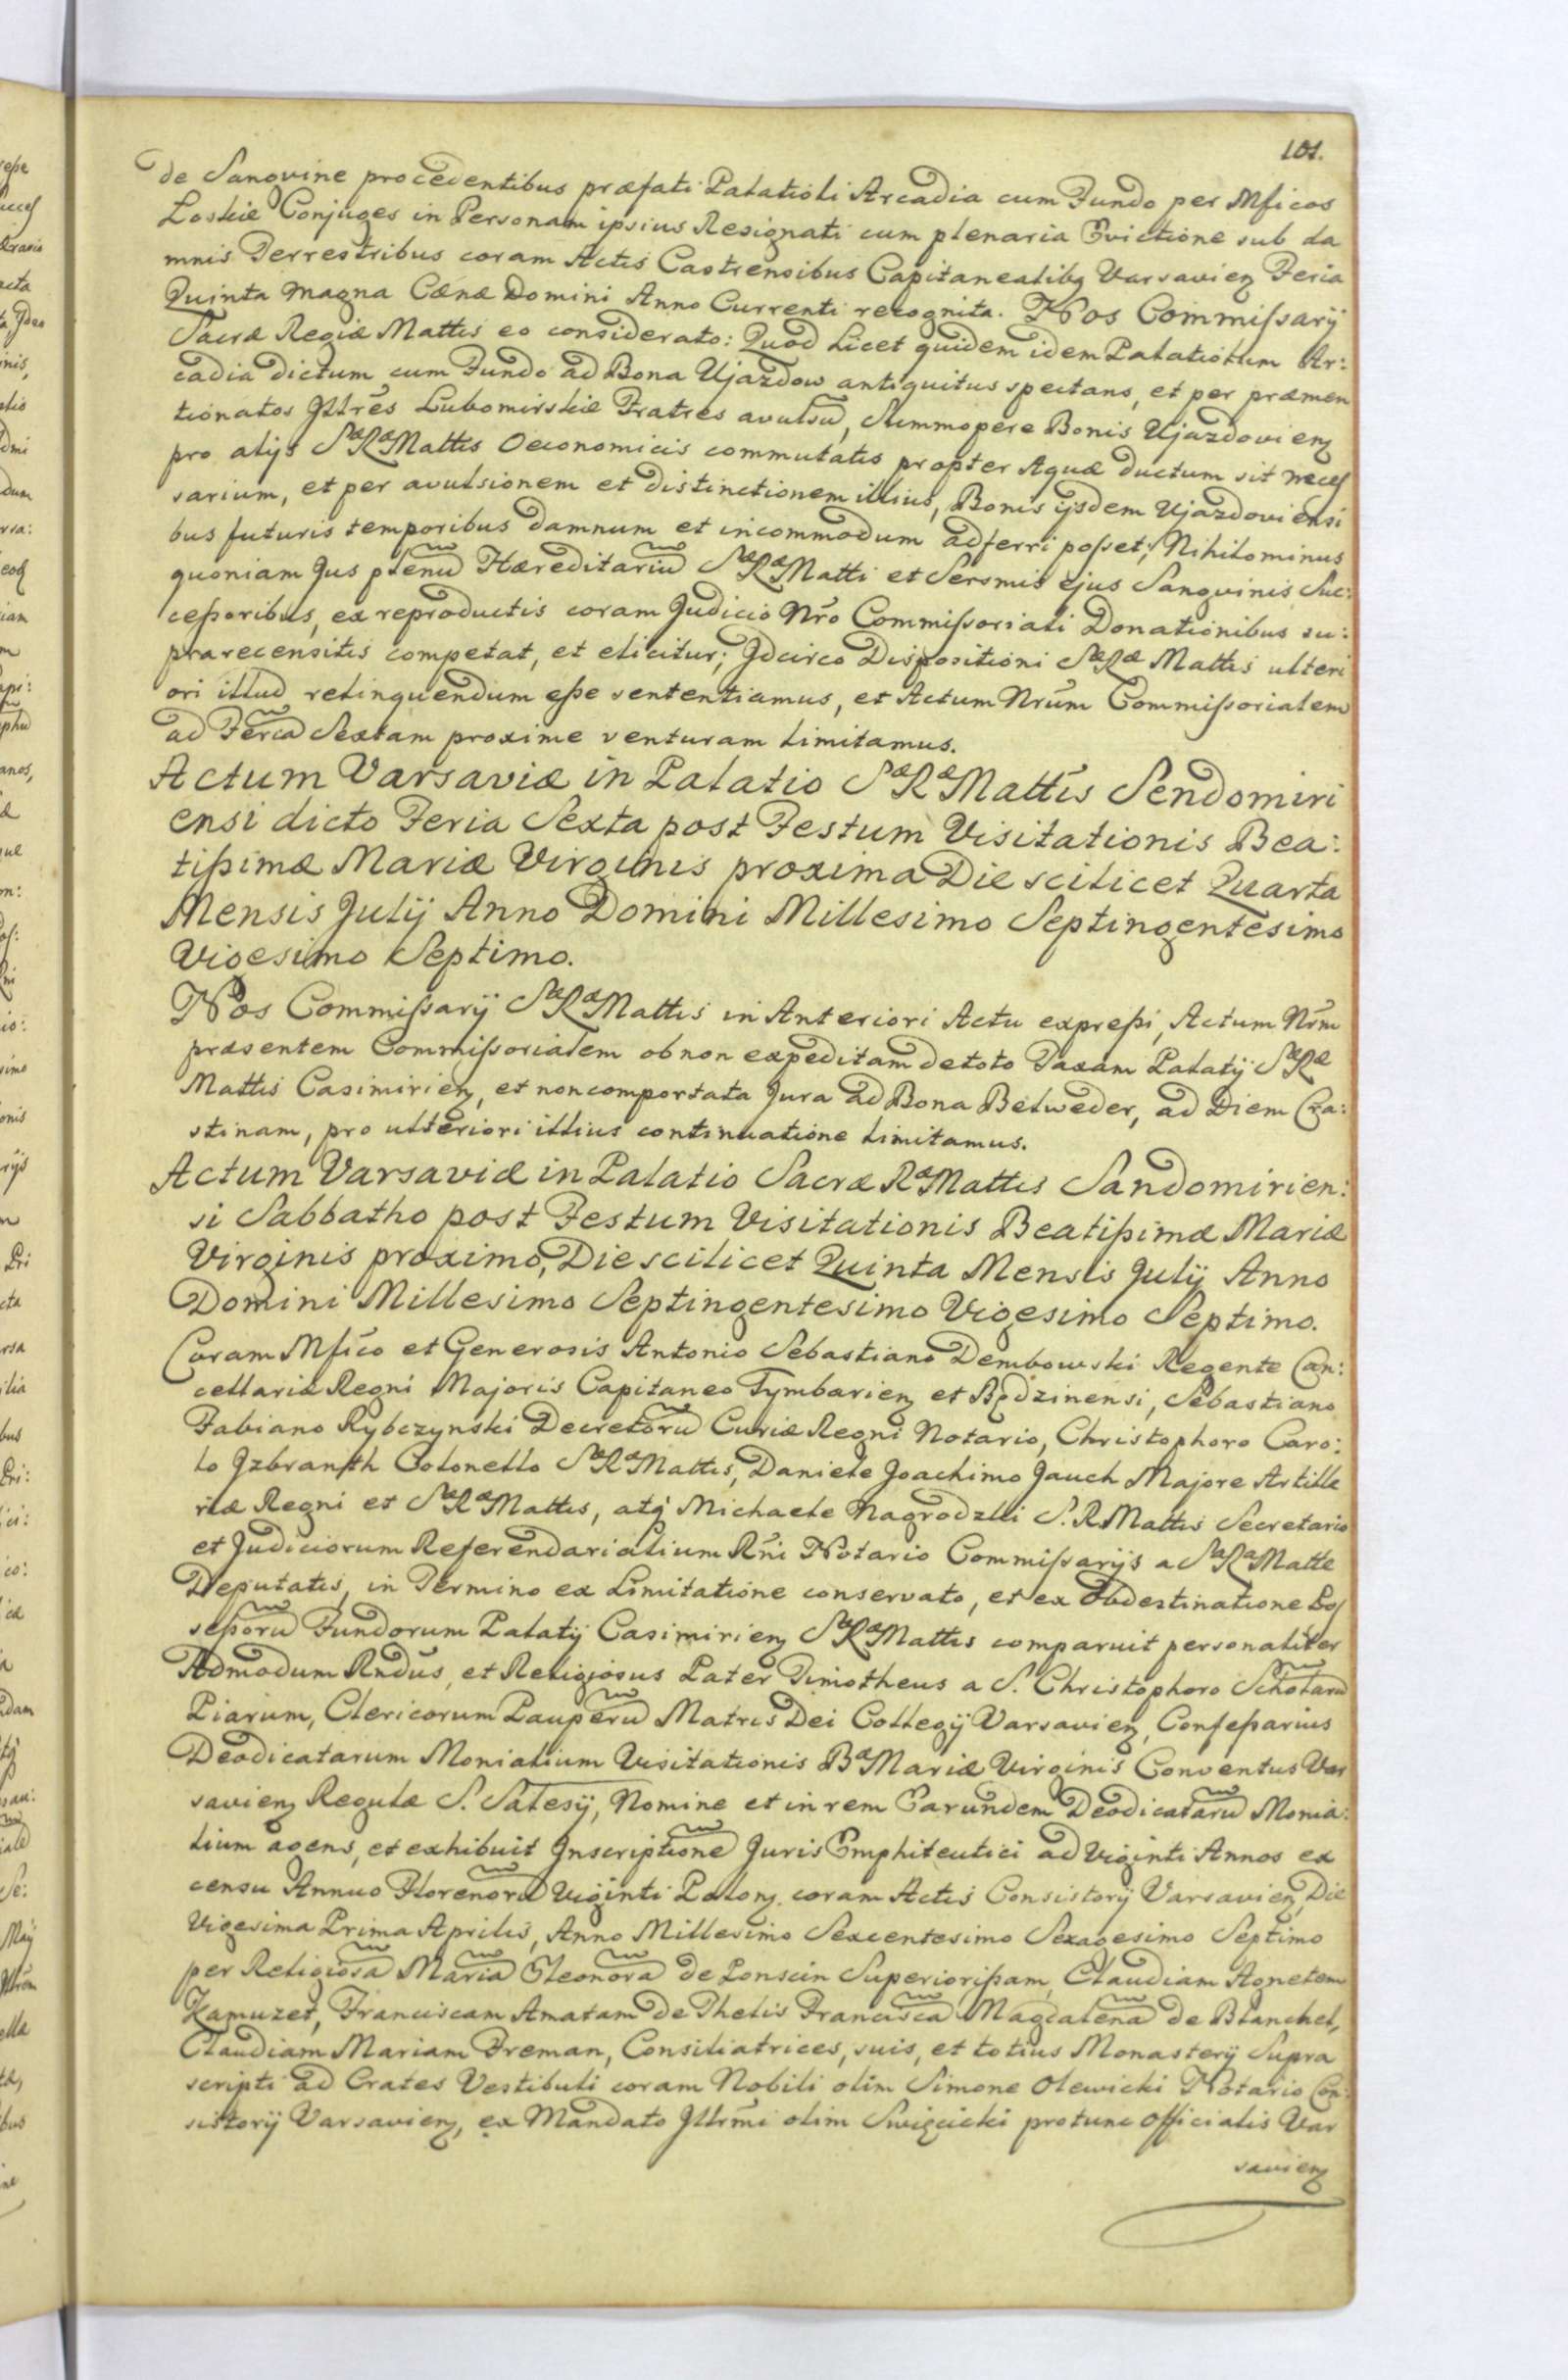 101.
de Sanguine procedentibus præfati Palatioli Arcadia cum Fundo per Mficos
Loskie Conjuges in Personam ipsius Resignati cum plenaria Evictione sub da
mnis Terrestribus coram Actis Castrensibus Capitanealibq Varsavien Feria
Quinta Magna Cænæ Domini Anno Currenti recognita. Nos Commissarij
Sacræ Regiæ Mattis eo considerato: Quod Licet quidem idem Palatiolum Ar:
cadia dictum cum Fundo ad Bona Ujazdow antiquitus spectans, et per præmen
tionatos Jllres Lubomirskie Fratres avulsū, Summopere Bonis Ujazdovien
pro alijs SæRæMattis Oeconomicis commutatis propter Aquæ ductum sit neces
sarium, et per avulsionem et distinctionem illius, Bonis ijsdem Ujazdoviensi
bus futuris temporibus damnum et incommodum adferri posset; Nihilominus
quoniam Jus plenū Hæreditariū SæRæMatti et Sersmis ejus Sanguinis Suc:
cessoribus, ex reproductis coram Judicio Nro Commissoriali Donationibus su:
prarecensitis competat, et elicitur; Jdcirco Dispositioni SæRæ Mattis ulteri
ori illud relinquendum esse sententiamus, et Actum Nrum Commissorialem
ad Feriā Sextam proxime venturam limitamus.
Actum Varsaviæ in Palatio SæRæMattis Sendomiri
ensi dicto Feria Sexta post Festum Visitationis Bea:
tissimæ Mariæ Virginis proxima Die scilicet Quarta
Mensis Julij Anno Domini Millesimo Septingentesimo
Vigesimo Septimo.
Nos Commissarij SæRæMattis in Anteriori Actu expressi, Actum Nrm
præsentem Commissorialem ob non expeditam de toto Taxam Palatij SæRæ
Mattis Casimirien, et noncomportata Jura ad Bona Belweder, ad Diem Cra:
stinam, pro ulteriori illius continuatione limitamus.
Actum Varsaviæ in Palatio Sacræ RæMattis Sandomirien:
si Sabbatho post Festum Visitationis Beatissimæ Mariæ
Virginis proximo, Die scilicet Quinta Mensis Julij Anno
Domini Millesimo Septingentesimo Vigesimo Septimo.
Coram Mfico et Generosis Antonio Sebastiano Dembowski Regente Can:
cellariæ Regni Majoris Capitaneo Tymbarien et Będzinensi, Sebastiano
Fabiano Rybczynski Decretorū Curiæ Regni Notario, Christophoro Caro:
lo Jzbransth Colonello SæRæMattis, Daniele Joachimo Jauch Majore Artille
riæ Regni et SæRæMattis, atq Michaele Nagrodzki S. R. Mattis Secretario
et Judiciorum Referendarialium Rni Notario Commissarijs a SaRaMatte
Deputatis, in Termino ex Limitatione conservato, et ex Obdestinatione Pos
sessorū Fundorum Palatij Casimirien SæRæMattis comparuit personaliter
Admodum Rndus, et Religiosus Pater Timotheus a S. Christophoro Scholarū
Piarum, Clericorum Pauperū Matris Dei Collegij Varsavien, Confessarius
Deodicatarum Monialium Visitationis BæMariæ Virginis Conventus Var
savien Regulæ S. Salesij, Nomine et in rem Earundem Deodicatarū Monia:
lium agens, et exhibuit Jnscriptionē Juris Emphiteutici ad Viginti Annos ex
censu Annuo Florenorū Viginti Polon. coram Actis Consistorij Varsavien, Die
Vigesima Prima Aprilis, Anno Millesimo Sexcentesimo Sexagesimo Septimo
per Religiosā Mariā Eleonorā de Ponscin Superiorissam, Claudiam Agnetem
Kamuzet, Franciscam Amatam de Thelis Franciscā Magdalenā de Blanchel,
Claudiam Mariam Freman, Consiliatrices, suis, et totius Monasterij Supra
scripti ad Crates Vestibuli coram Nobili olim Simone Olewicki Notario Con:
sistorij Varsavien, ex Mandato Jllrmi olim Swięcicki protunc Officialis Var
savien